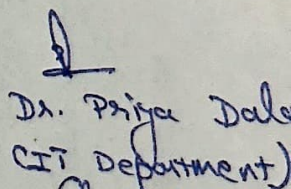 Dr. Priya Dala
CIT Department)